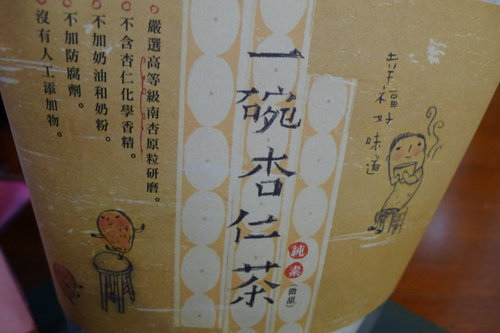 幸福好味道
一碗杏仁茶
純素(微甜)
嚴選高等級南杏原粒研磨。
不含杏仁化學香精。
不加奶油和奶粉。
不加防腐劑。
沒有人工添加物。